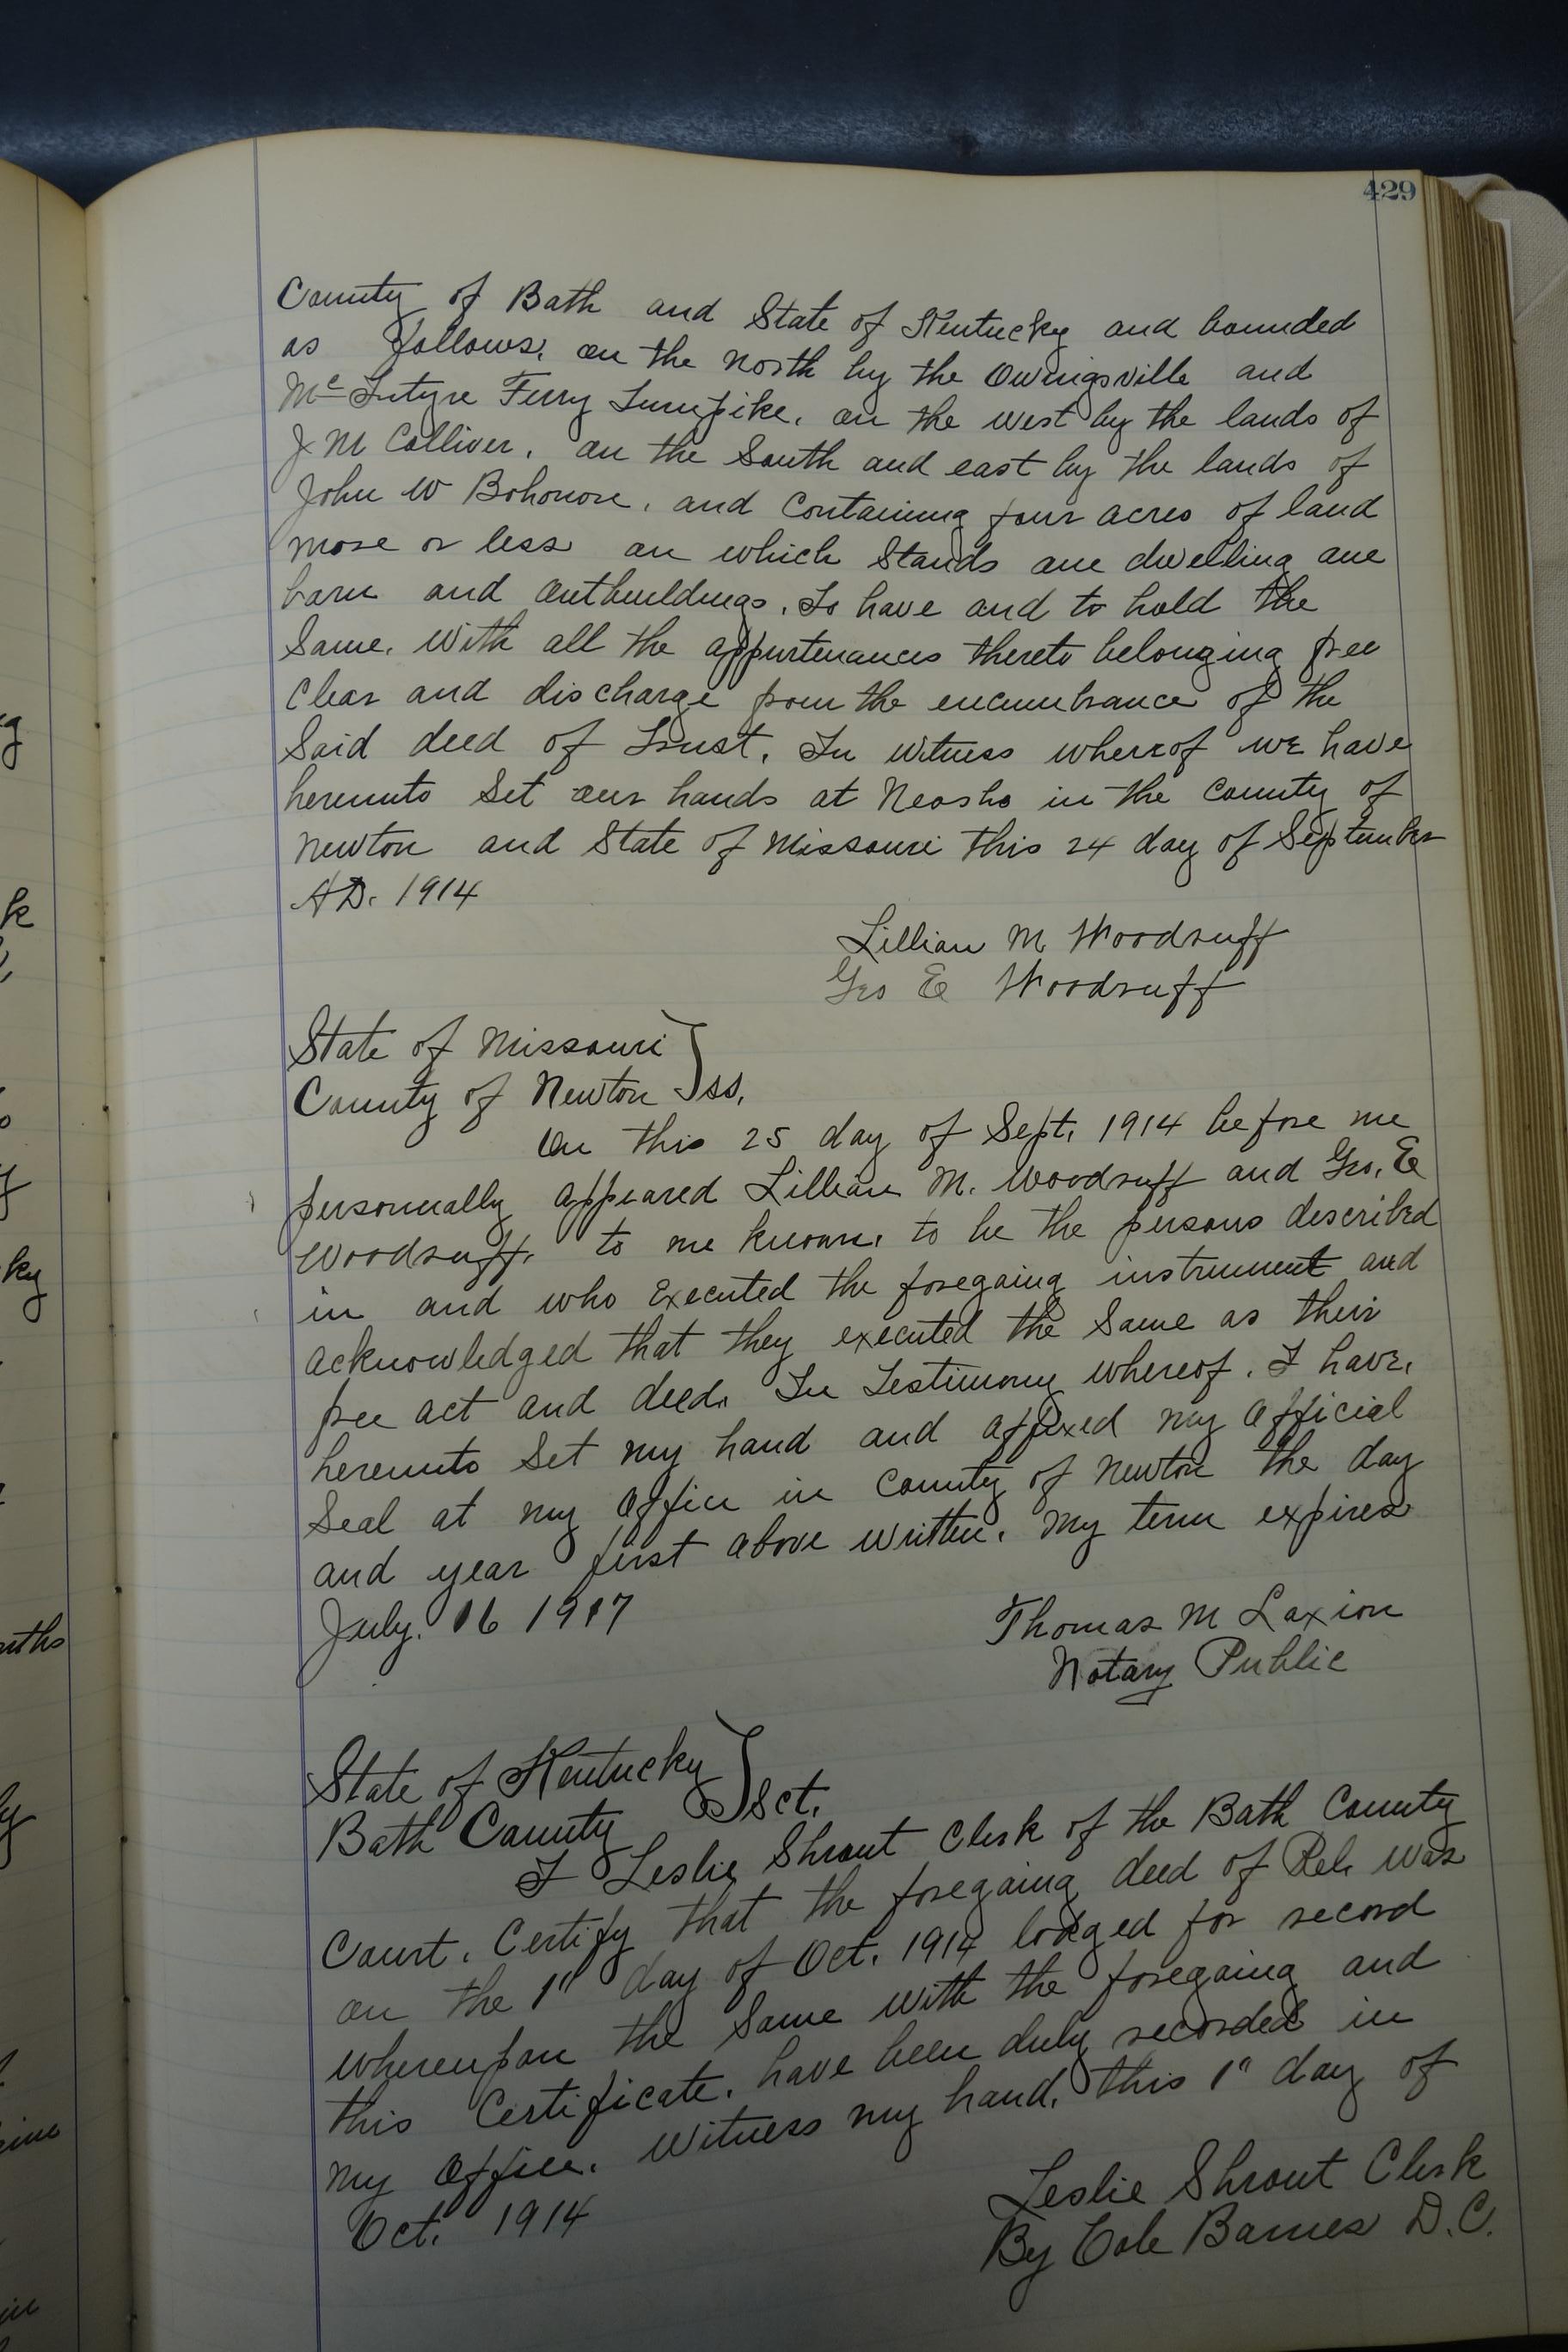 429
County of Bath and State of Kentucky and bounded
as follows, on the north by the Owingsville and
Mc Intyre Ferry Turnpike, on the west by the lands of
J M Colliver, on the South and east by the lands of
John W Bohonon, and Containing four acres of land
more or less on which Stands one dwelling one
barn and outbuildings, To have and to hold the
Same, With all the appurtenances thereto belonging free
Clear and discharge from the encumbrance of the
Said deed of Trust, In witness whereof we have
hereunto Set our hands at Neosho in the County of
Newton and State of Missouri this 24 day of September
A.D. 1914
Lillian M Woodruff
Geo E Woodruff
State of Missouri
County of Newton } ss,
On this 25 day of Sept. 1914 before me
personnally appeared Lillian M. Woodruff and Geo. E
Woodruff, to me known, to be the persons described
in and who Executed the foregoing instrument and
acknowledged that they executed the Same as their
free act and deed. In Testimony whereof, I have,
hereunto Set my hand and affixed my official
Seal at my Office in County of Newton the day
and year first above written. My term expires
July. 16 1917
Thomas M Laxion
Notary Public
State of Kentucky
Bath County } Sct.
I Leslie Shrout Clerk of the Bath County
Court, Certify that the foregoing deed of Rel, was
on the 1" day of Oct. 1914 lodged for record
whereupon the Same with the foregoing and
this Certificate, have been duly recorded in
my office. Witness my hand, this 1" day of
Oct. 1914
Leslie Shrout Clerk
By Cole Barnes D.C.